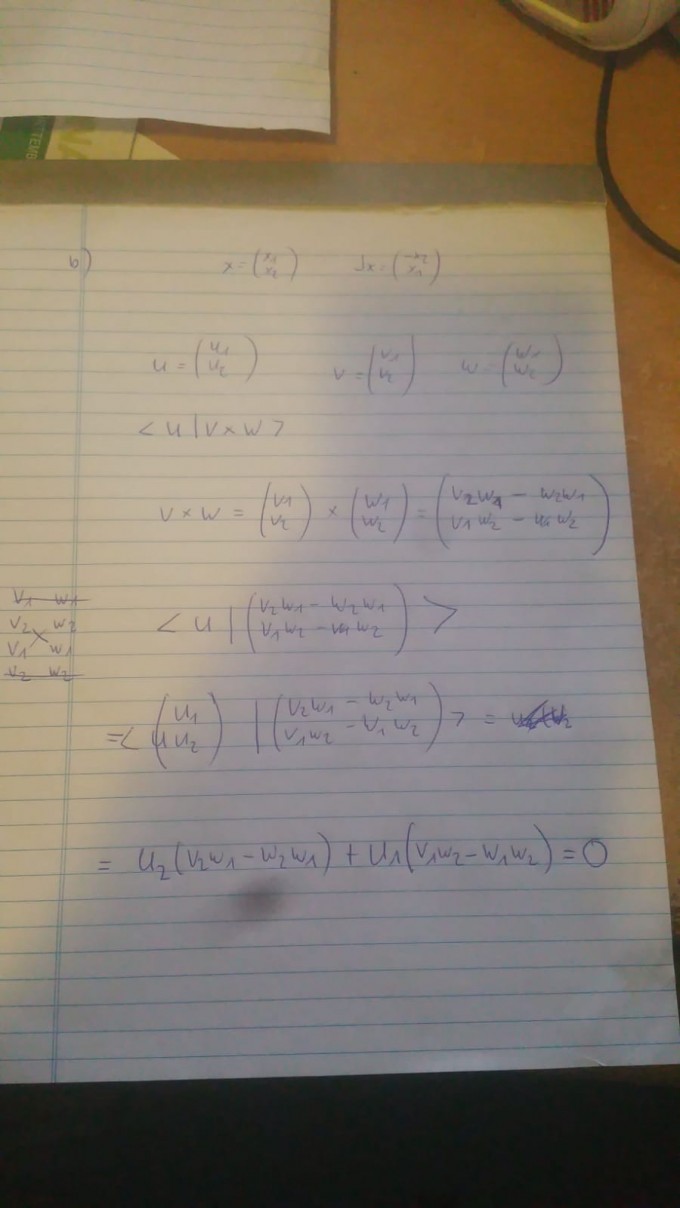 b) x = (x1 x2) Jx = (-x2 x1)
u = (u1 u2) v = (v1 v2) w = (w1 w2)
< u | v × w >
v × w = (v1 v2) × (w1 w2) = (v2w1 - w2w1 v1w2 - v1w2)
< u | (v2w1 - w2w1 v1w2 - v1w2) >
v1 w1
v2 w2
v1 w1
v2 w2
= < (u1 u2) | (v2w1 - w2w1 v1w2 - v1w2) > =
= u2(v2w1 - w2w1) + u1(v1w2 - w1w2) = 0